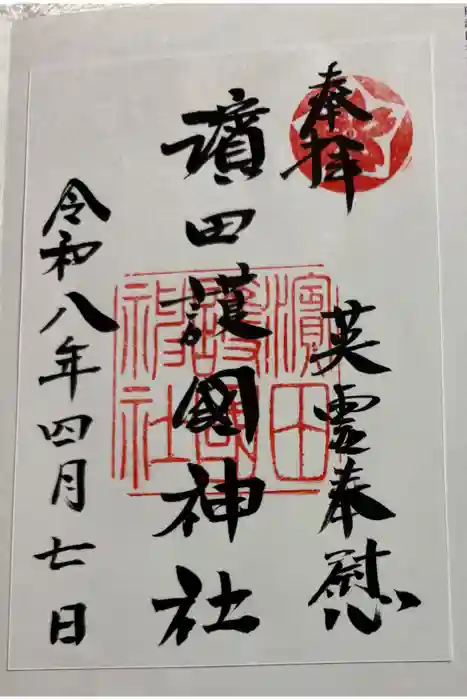 奉拝
英霊奉慰
濱田護國神社
濱田護國神社
令和八年四月七日